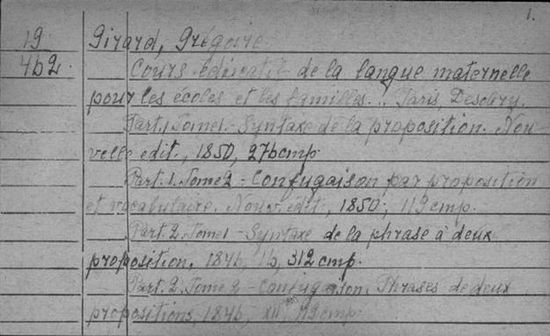 1.
19 Girard, Grégoire.
462 Cours éducatif de la langue maternelle
pour les écoles et les familles... Paris, Desobry.
Part. 1 Tome 1 - Syntaxe de la proposition. Nou-
velle édit., 1850, 276 cmp.
Part. 1. Tome 2 - Conjugaison par proposition
et vocabulaire. Nouv. édit., 1850; 119 cmp.
Part. 2. Tome 1 - Syntaxe de la phrase à deux
proposition. 1846, 312 cmp.
Part. 2. Tome 2 - Conjugaison. Phrases de deux
propositions, 1846, XII cmp.